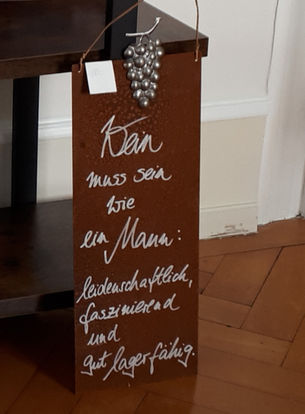 Wein
muss sein
wie
ein Mann:
leidenschaftlich,
faszinierend
und
gut lagerfähig.